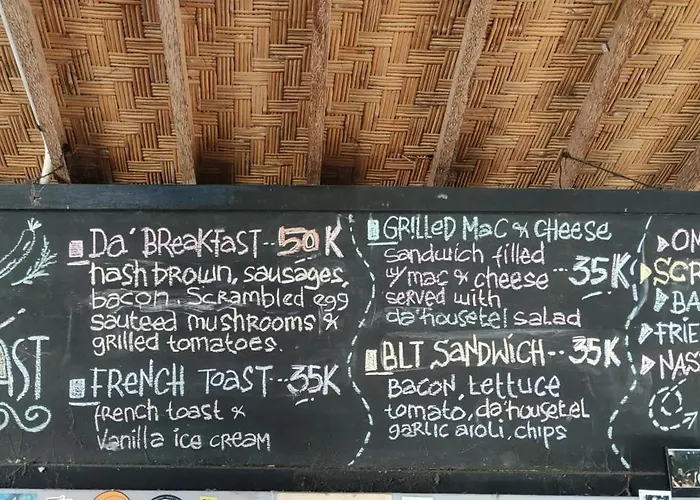 AST
Da' BReakfasT-- 50K
hash brown, sausages,
bacon, scrambled egg
sauteed mushrooms &
grilled tomatoes.
FReNCH ToasT--35K
french toast &
Vanilla ice cream
GRilled Mac & cheese
sandwich filled
w/mac & cheese ---35K
served with
da'housetel salad
BLT SaNdWiCH--35K
Bacon, Lettuce
tomato, da'housetel
garlic aioli, chips
ON
SCR
BA
FRIE
NAS